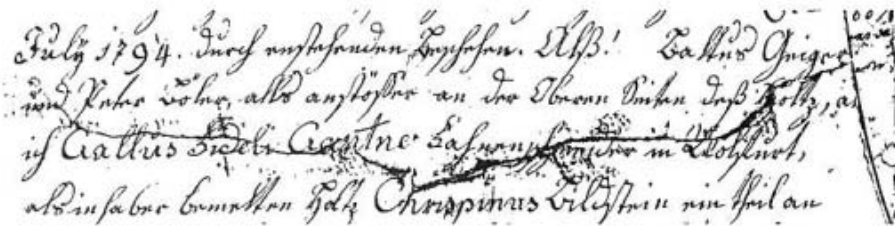 July 1794. durch enstehenden beschehen. Alß! Baltus Geiger
und Peter Böler, alls anstösser an der Oberen Seiten deß Holtz, an
ich Gallus Fideli Gentne in Wolfurt,
als inhaber bemelten Holtz Chrispinus Bildstein ein theil an